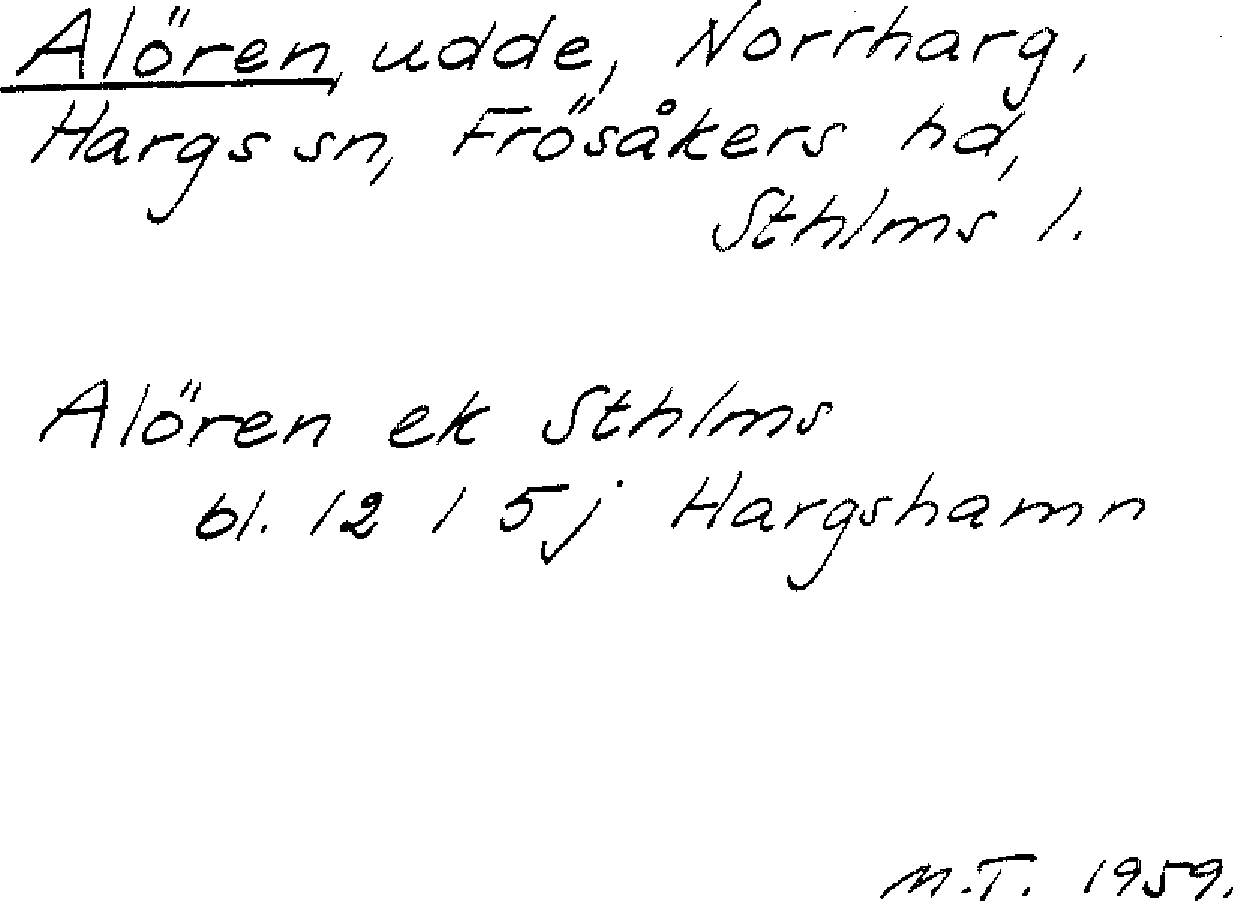 Alören, udde, Norrharg,
Hargs sn, Frösåkers hd,
Sthlms l.
Alören ek Sthlms
bl. 12 I 5j Hargshamn
M.T. 1959.